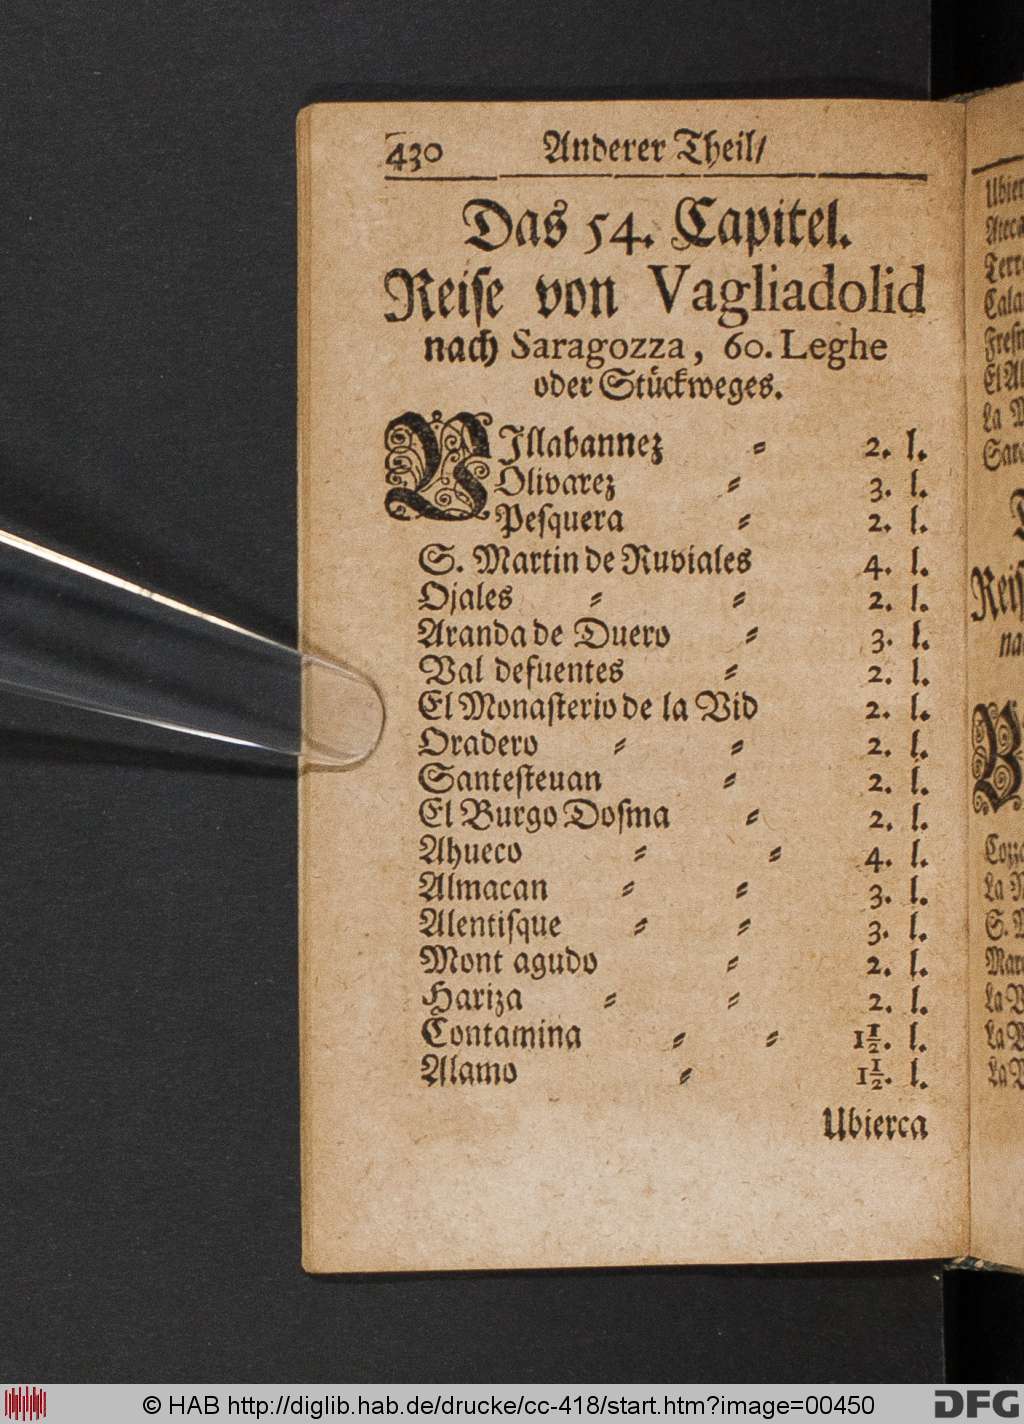 430 Anderer Theil/
Das 54. Capitel.
Reise von Vagliadolid
nach Saragozza, 60. Leghe
oder Stückweges.
VIllabannez = 2. l.
Olivarez = 3. l.
Pesquera = 2. l.
S. Martin de Ruviales 4. l.
Ojales = = 2. l.
Aranda de Duero = 3. l.
Val defuentes = 2. l.
El Monasterio de la Vid 2. l.
Oradero = = 2. l.
Santestevan = 2. l.
El Burgo Dosma = 2. l.
Ahueco = = 4. l.
Almacan = = 3. l.
Alentisque = = 3. l.
Mont agudo = 2. l.
Hariza = = 2. l.
Contamina = = 1½. l.
Alamo = 1½. l.
Ubierca
© HAB http://diglib.hab.de/drucke/cc-418/start.htm?image=00450
DFG